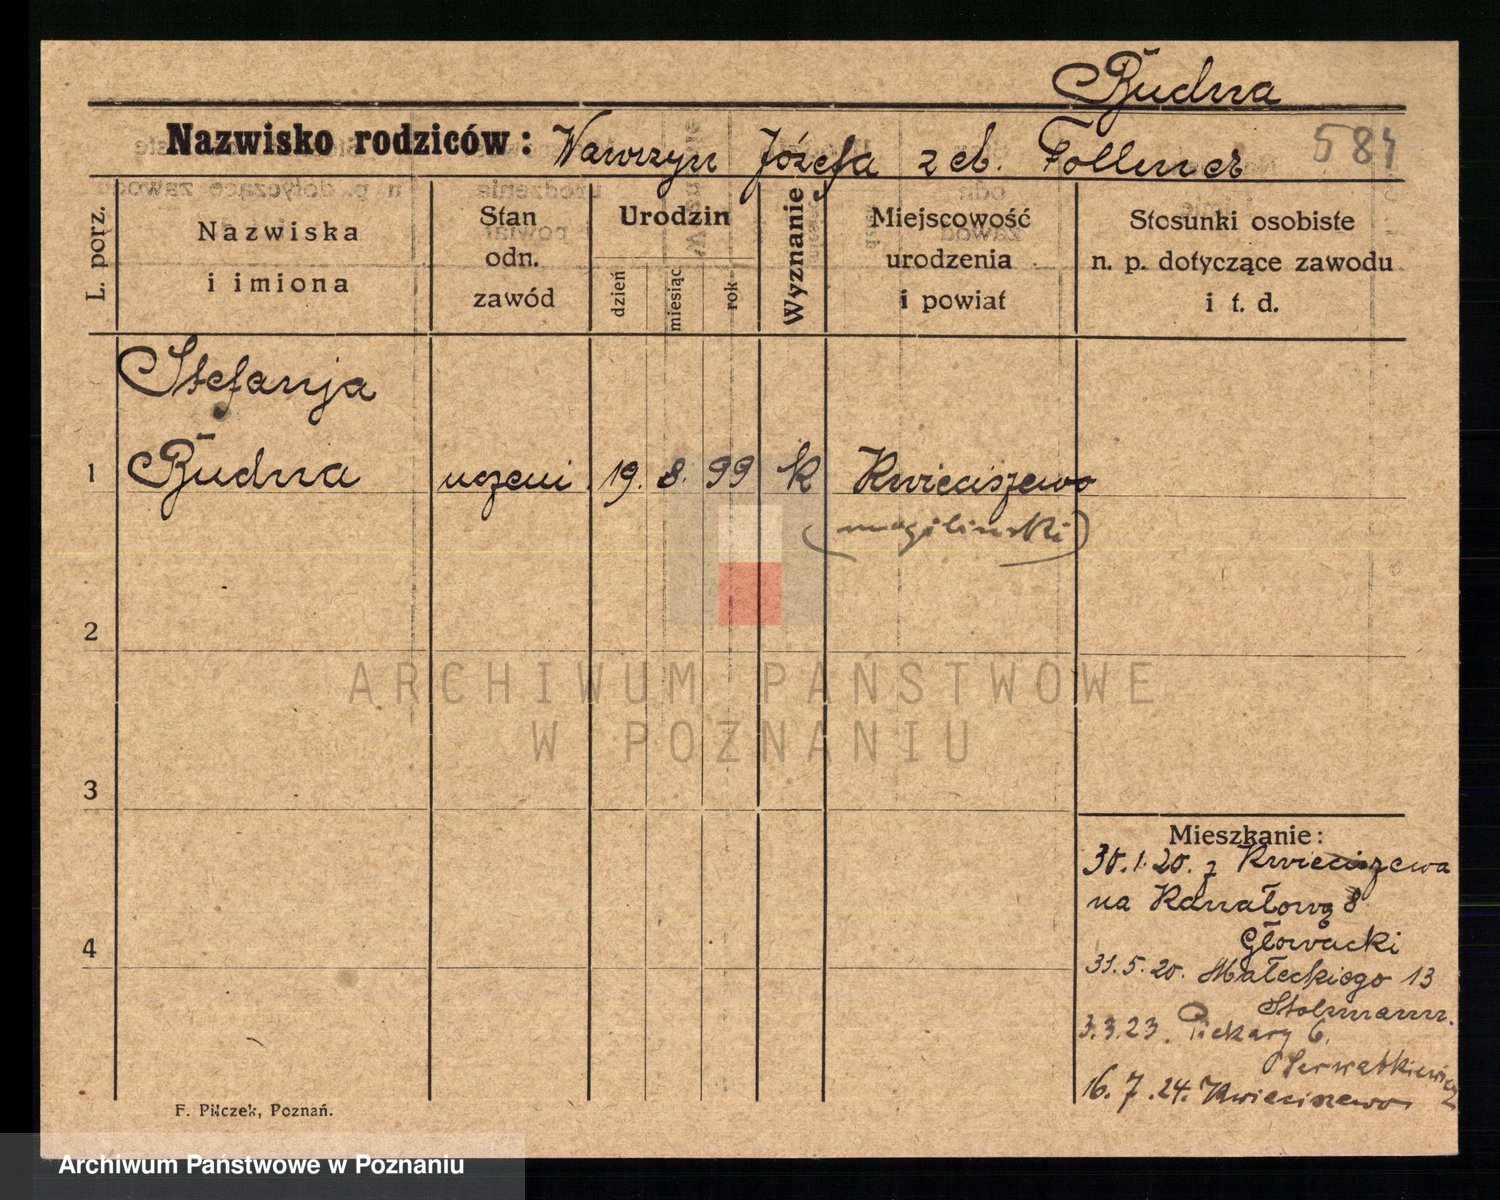 Budna
Nazwisko rodziców: Wawrzyn Józefa z eb. Follmer 584
L. porz.
Nazwiska
i imiona
Stan
odn.
zawód
Urodzin
dzień
miesiąc
rok
Wyznanie
Miejscowość
urodzenia
i powiat
Stosunki osobiste
n. p. dotyczące zawodu
i t. d.
Stefanja
1 Budna uczeni 19. 8. 99 k Kwieciszewo
(mogilinski)
2
ARCHIWUM PAŃSTWOWE
W POZNANIU
3
4
Mieszkanie:
30.1.20. z Kwieciszewa
na Kanałową 8
Głowacki
31.5.20. Małeckiego 13
Stolzmann.
3.3.23. Piekary 6.
Serwatkiewicz
16.7.24. Kwieciszewo
F. Pilczek, Poznań.
Archiwum Państwowe w Poznaniu